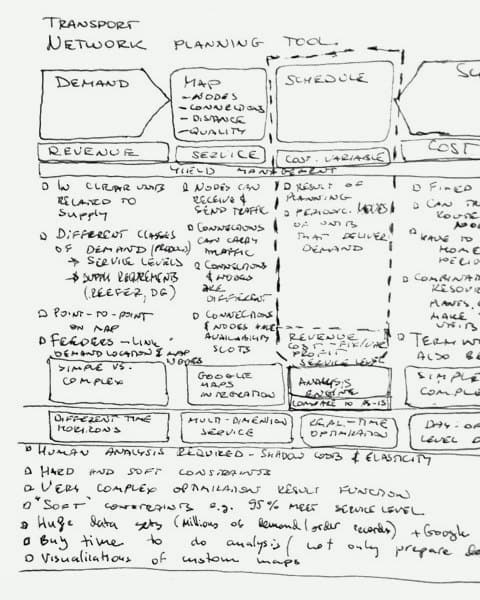 TRANSPORT
NETWORK PLANNING TOOL
DEMAND
MAP
- NODES
- CONNECTIONS
- DISTANCE
- QUALITY
SCHEDULE
REVENUE
SERVICE
COST-VARIABLE
COST
YIELD MANAGEMENT
IN CLEAR UNITS
RELATED TO
SUPPLY
DIFFERENT CLASSES
OF DEMAND
→ SERVICE LEVELS
→ SUPPLY REQUIREMENTS
(REEFER, DG)
POINT-TO-POINT
ON MAP
FEEDERS - LINK
DEMAND LOCATION & MAP
NODES
NODES CAN
RECEIVE &
SEND TRAFFIC
CONNECTIONS
CAN CARRY
TRAFFIC
CONNECTIONS
& NODES
ARE
DIFFERENT
CONNECTIONS
& NODES HAVE
AVAILABILITY
SLOTS
RESULT OF
PLANNING
PERIODIC MOVES
OF UNITS
THAT DELIVER
DEMAND
REVENUE
PROFIT
SERVICE LEVEL
FIXED
CAN
HAVE TO
COMBINAT
RESOUR
PLANES,
MAKE
UNITS
TERM
ALSO BE
SIMPLE VS.
COMPLEX
GOOGLE
MAPS
INTEGRATION
ANALYSIS
ENGINE
COMPARE TO AS-IS
SIMPLE
COMPLE
DIFFERENT TIME
HORIZONS
MULTI-DIMENSION
SERVICE
REAL-TIME
OPTIMISATION
DAY-OF
LEVEL
HUMAN ANALYSIS REQUIRED - SHADOW COSTS & ELASTICITY
HARD AND SOFT CONSTRAINTS
VERY COMPLEX OPTIMISATION RESULT FUNCTION
"SOFT" CONSTRAINTS E.G. 95% MEET SERVICE LEVEL
Huge data sets (Millions of demand/order records) + Google
Buy time to do analysis (not only prepare
Visualizations of custom maps